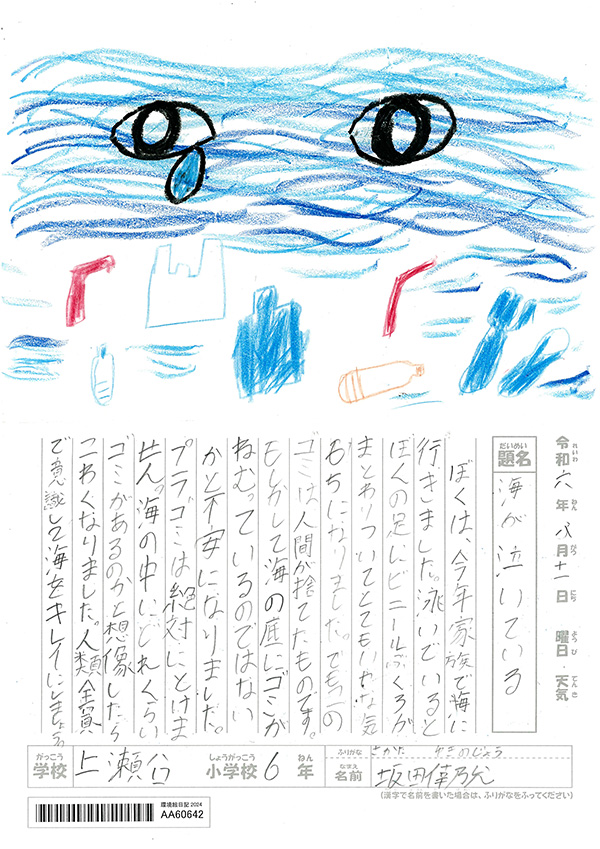 令和六年八月十一日 曜日・天気
れいわ ねん がつ にち ようび てんき
だいめい
題名
海が泣いている
ぼくは、今年家族で海に
行きました。泳いでいると
ぼくの足にビニールぶくろが
まとわりついてとてもいやな気
もちになりました。でもこの
ゴミは人間が捨てたものです。
もしかして海の底にゴミが
ねむっているのではない
かと不安になりました。
プラゴミは絶対にとけま
せん。海の中にどれくらい
ゴミがあるのかと想像したら
こわくなりました。人類全員
で意識して海をキレイにしましょう。
がっこう
学校
上瀬谷
しょうがっこう
小学校
6
ねん
年
ふりがな
さかた
なまえ
名前
坂田
(漢字で名前を書いた場合は、ふりがなをふってください)
環境絵日記 2024
AA60642